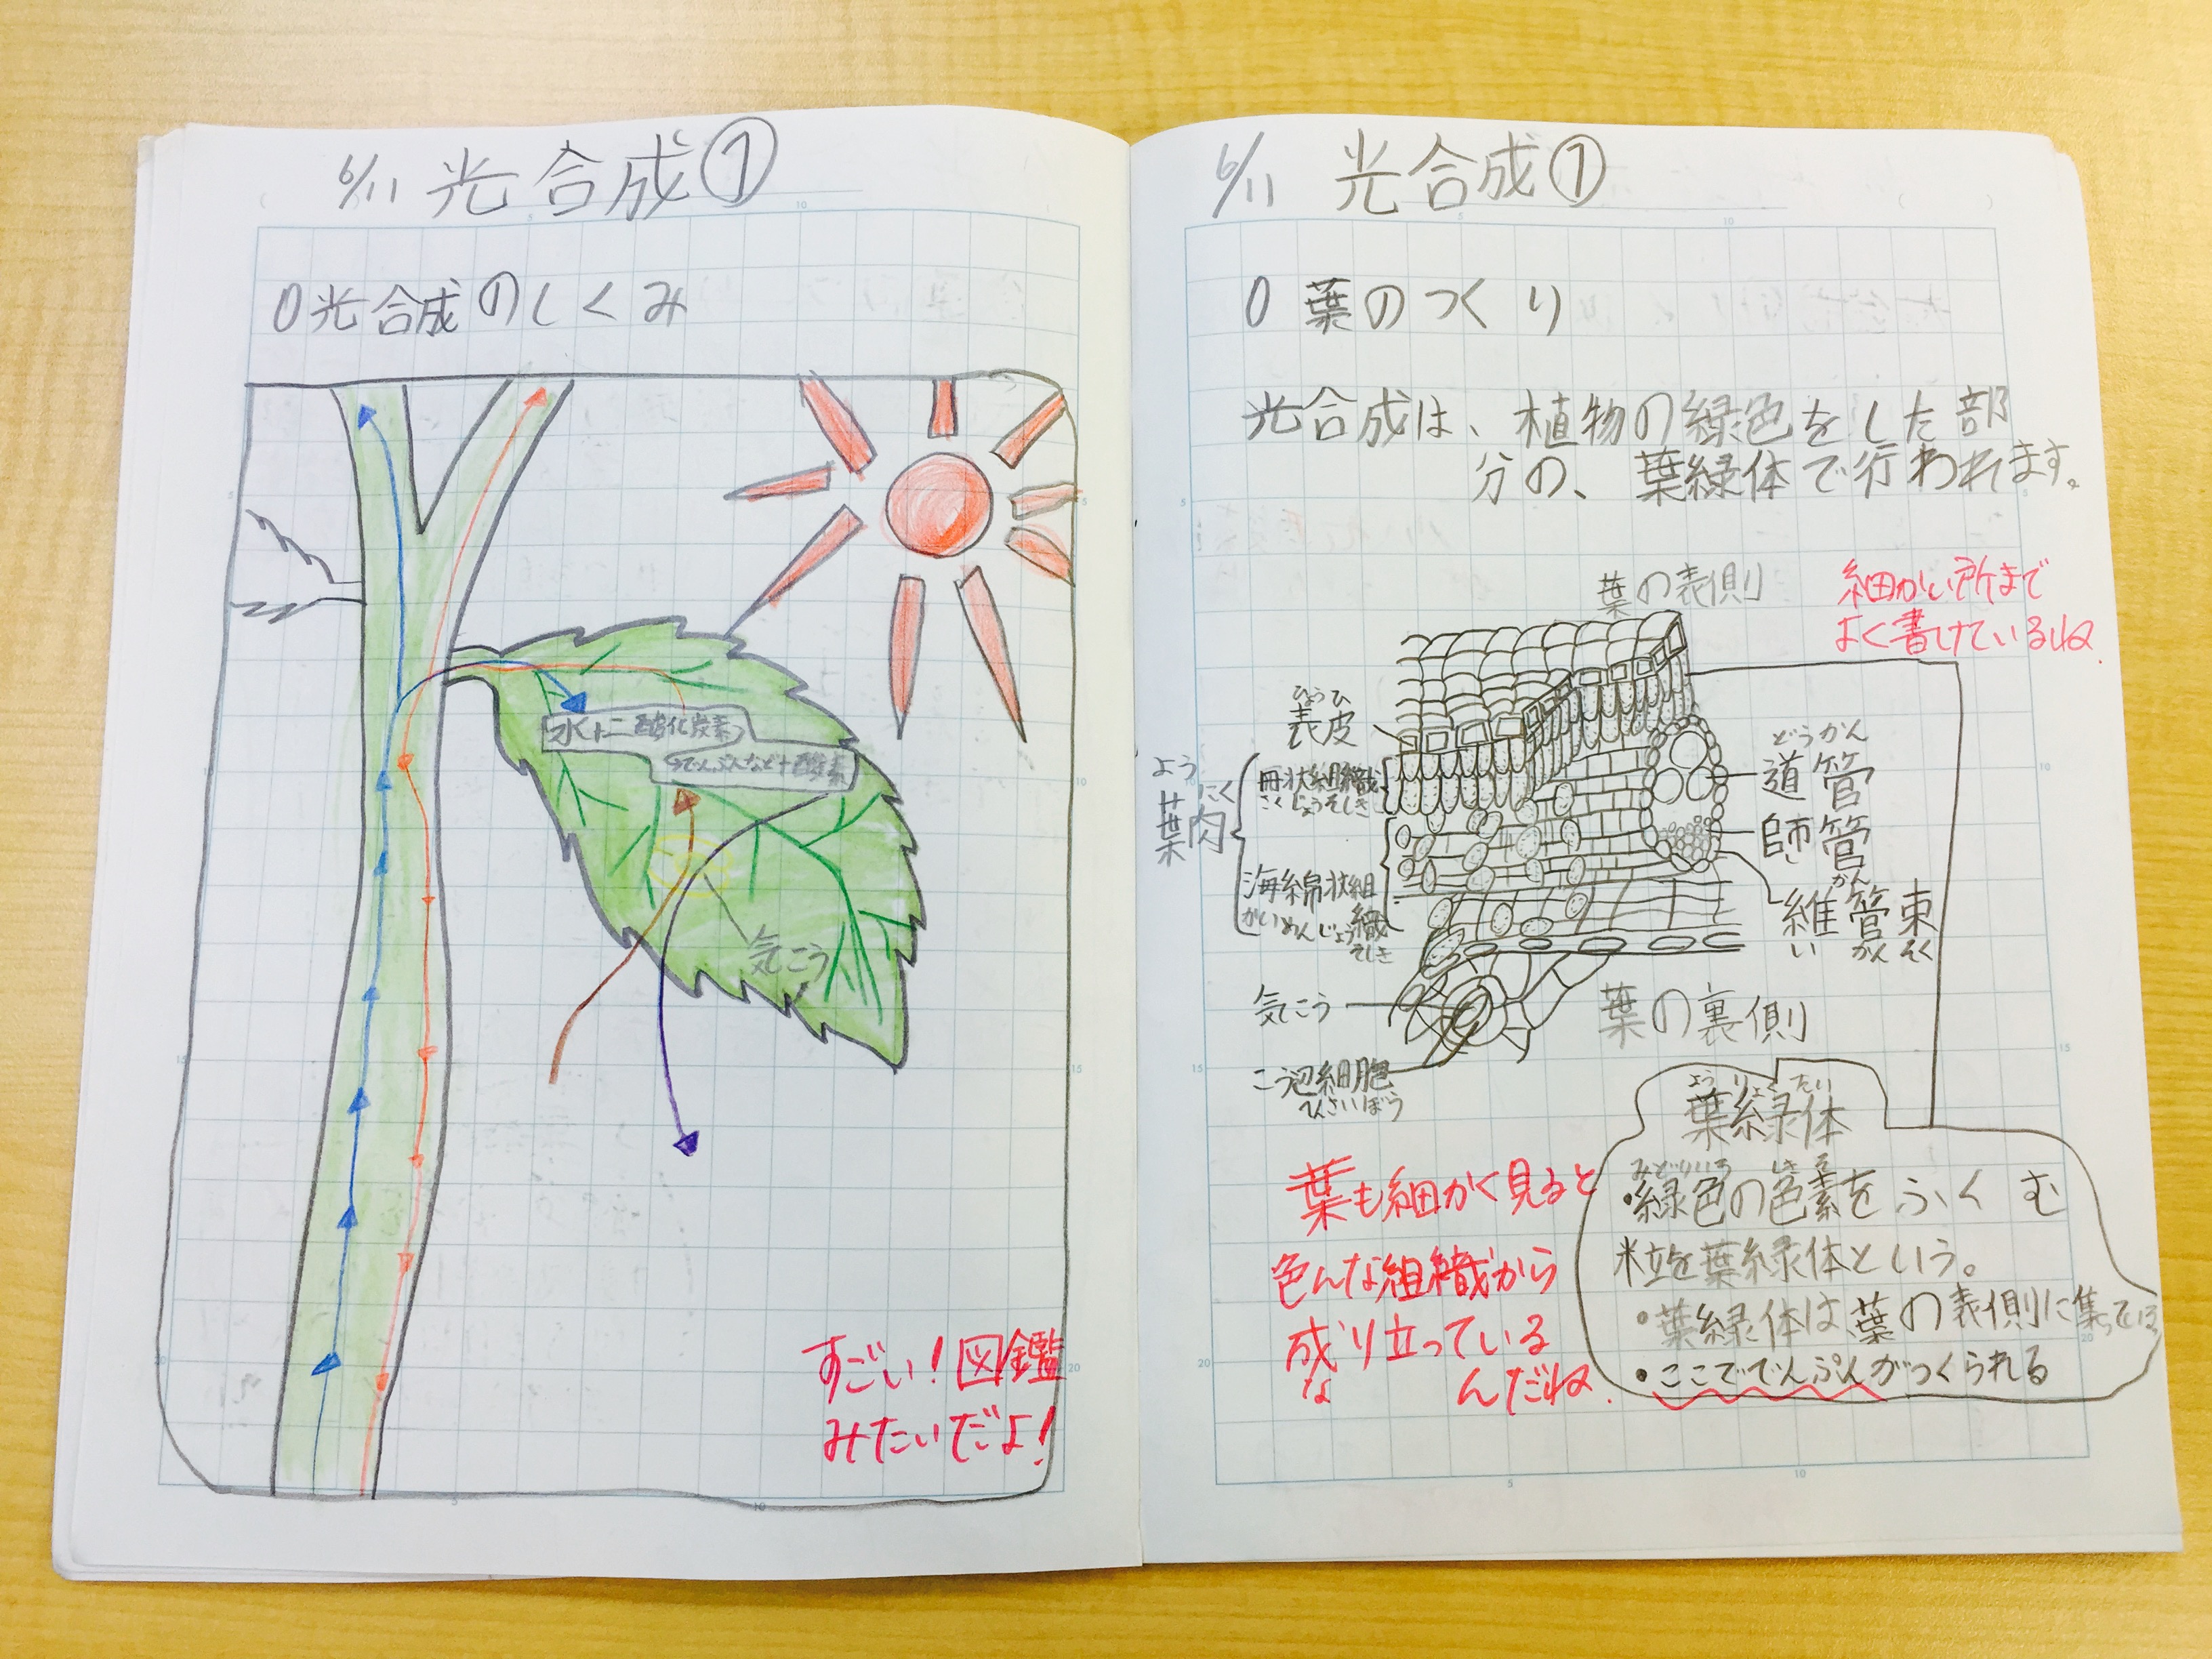 6/11 光合成①
○光合成のしくみ
水+二酸化炭素
→でんぷんなど+酸素
気こう
すごい!図鑑
みたいだよ!
6/11 光合成①
○葉のつくり
光合成は、植物の緑色をした部
分の、葉緑体で行われます。
細かい所まで
よく書けているね.
葉の表側
ひょうひ
表皮
ようにく
葉肉
柵状組織
さくじょうそしき
海綿状組織
かいめんじょうそしき
気こう
こう辺細胞
へんさいぼう
どうかん
道管
師管
かん
維管束
いかんそく
葉の裏側
ようりょくたい
葉緑体
みどりいろ しきそ
・緑色の色素をふくむ
粒を葉緑体という。
・葉緑体は、葉の表側に集っている
・ここででんぷんがつくられる
葉も細かく見ると
色んな組織から
成り立っている
な んだね.